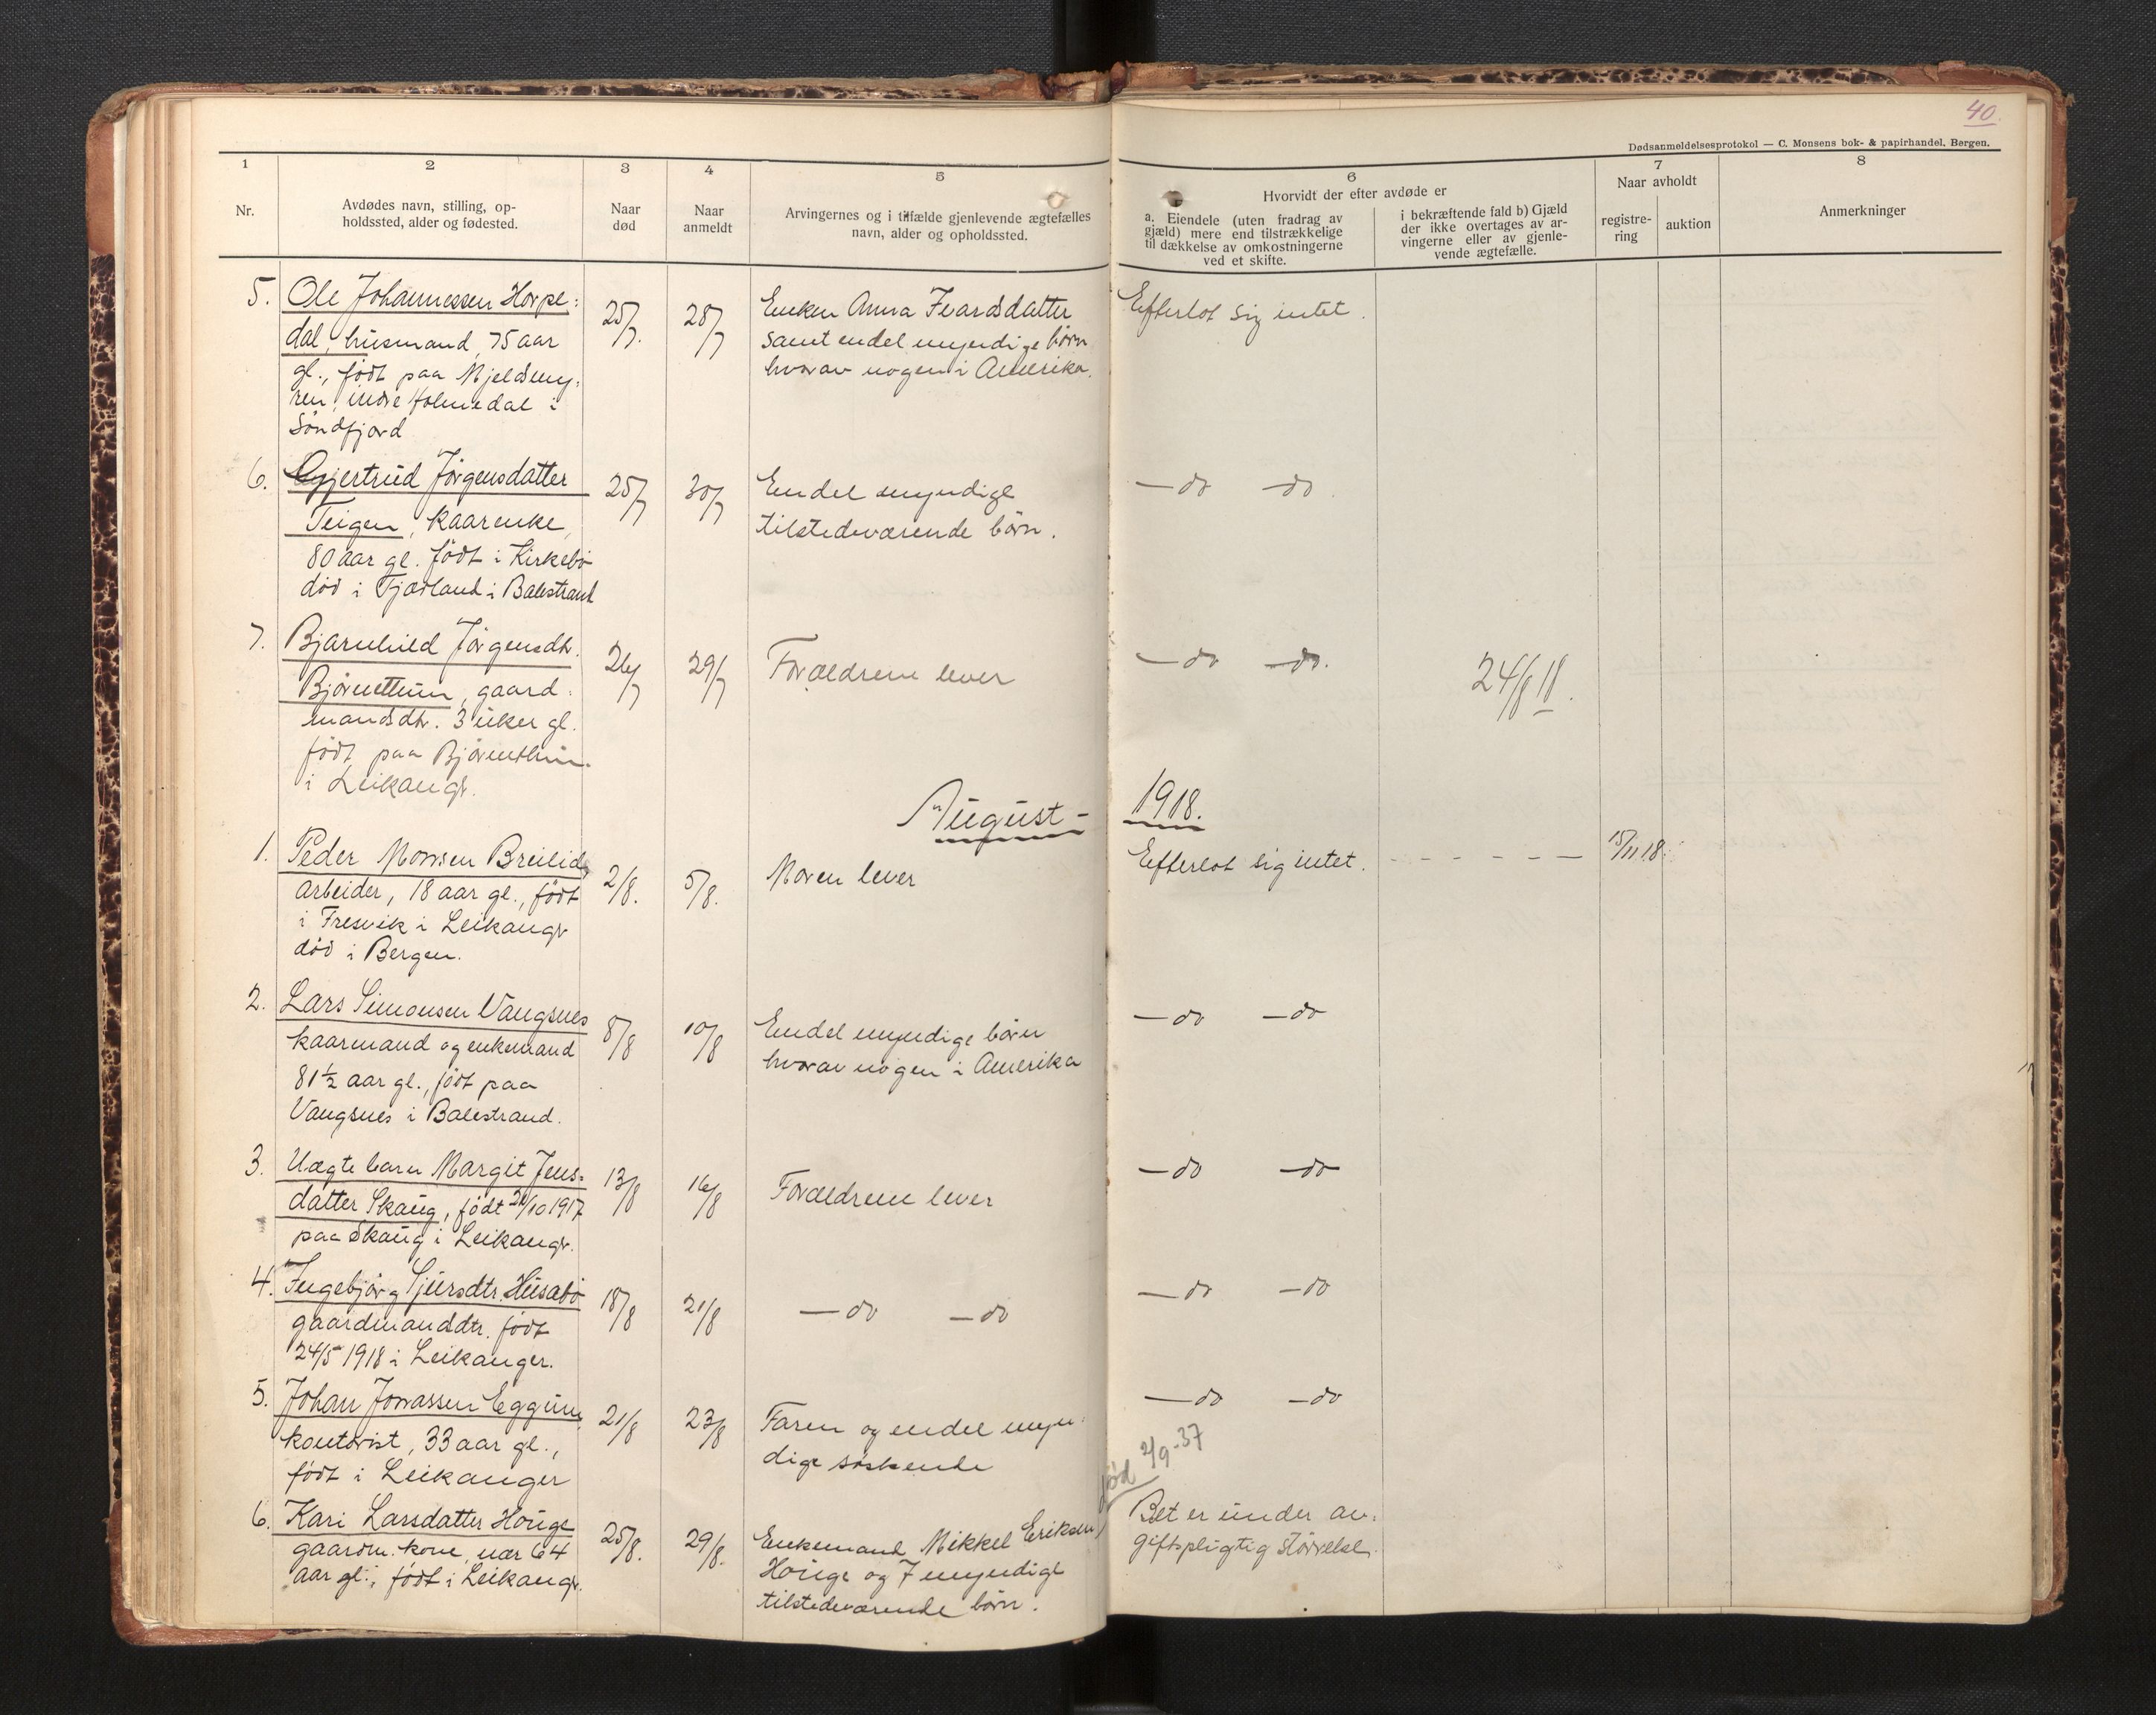 40.
Dødsanmeldelsesprotokol — C. Monsens bok- & papirhandel, Bergen.
1
2
3
4
5
6
7
8
Nr.
Avdødes navn, stilling, op-
holdssted, alder og fødested.
Naar
død
Naar
anmeldt
Arvingernes og i tilfælde gjenlevende ægtefælles
navn, alder og opholdssted.
Hvorvidt der efter avdøde er
a. Eiendele (uten fradrag av
gjæld) mere end tilstrækkelige
til dækkelse av omkostningerne
ved et skifte.
i bekræftende fald b) Gjæld
der ikke overtages av ar-
vingerne eller av gjenle-
vende ægtefælle.
Naar avholdt
registre-
ring
auktion
Anmerkninger
5. Ole Johannessen Horpe-
dal, husmand, 75 aar
gl., født paa Mjeldsmy-
ren, indre Holmedal i
Søndfjord
25/7.
28/7
Enken Anna Ivarsdatter
samt endel myndige børn
hvorav nogen i Amerika.
Efterlot sig intet.
6. Gjertrud Jørgensdatter
Teigen, kaarenke,
80 aar gl. født i Kirkebø
død i Fjærland i Balestrand
25/7
30/7
Endel myndige
tilstedeværende børn.
— do — do.
7. Bjarnhild Jørgensdtr.
Bjørnethun, gaard-
mandsdtr. 3 uker gl.
født paa Bjørnethun
i Leikangr.
26/7
29/7
Forældrene lever
— do — do.
24/8 18.
August - 1918.
1. Peder Monsen Breilid,
arbeider, 18 aar gl., født
i Fresvik i Leikangr
død i Bergen.
2/8.
5/8.
Moren lever
Efterlot sig intet. - - - - - —
15/11 18.
2. Lars Simonsen Vangsnes
kaarmand og enkemand
81½ aar gl., født paa
Vangsnes i Balestrand.
8/8
10/8
Endel myndige børn
hvorav nogen i Amerika
— do — do
3. Uægte barn Margit Jens-
datter Skaug, født 21/10 1917
paa Skaug i Leikangr.
13/8
16/8
Forældrene lever
— do — do
4. Ingebjørg Sjursdtr. Husabø
gaardmandsdtr. født
24/5 1918 i Leikanger.
18/8
21/8
— do — do
— do — do
5. Johan Jonassen Eggum,
kontorist, 33 aar gl.,
født i Leikanger
21/8
23/8
Faren og endel myn-
dige søskende
— do — do
død 2/9-37
6. Kari Larsdatter Hønge
gaardm. kone, nær 64
aar gl., født i Leikangr.
25/8.
29/8.
Enkemand Mikkel Eriksen
Hønge og 7 myndige
tilstedeværende børn.
Bet er under av-
giftspligtig størrelse.